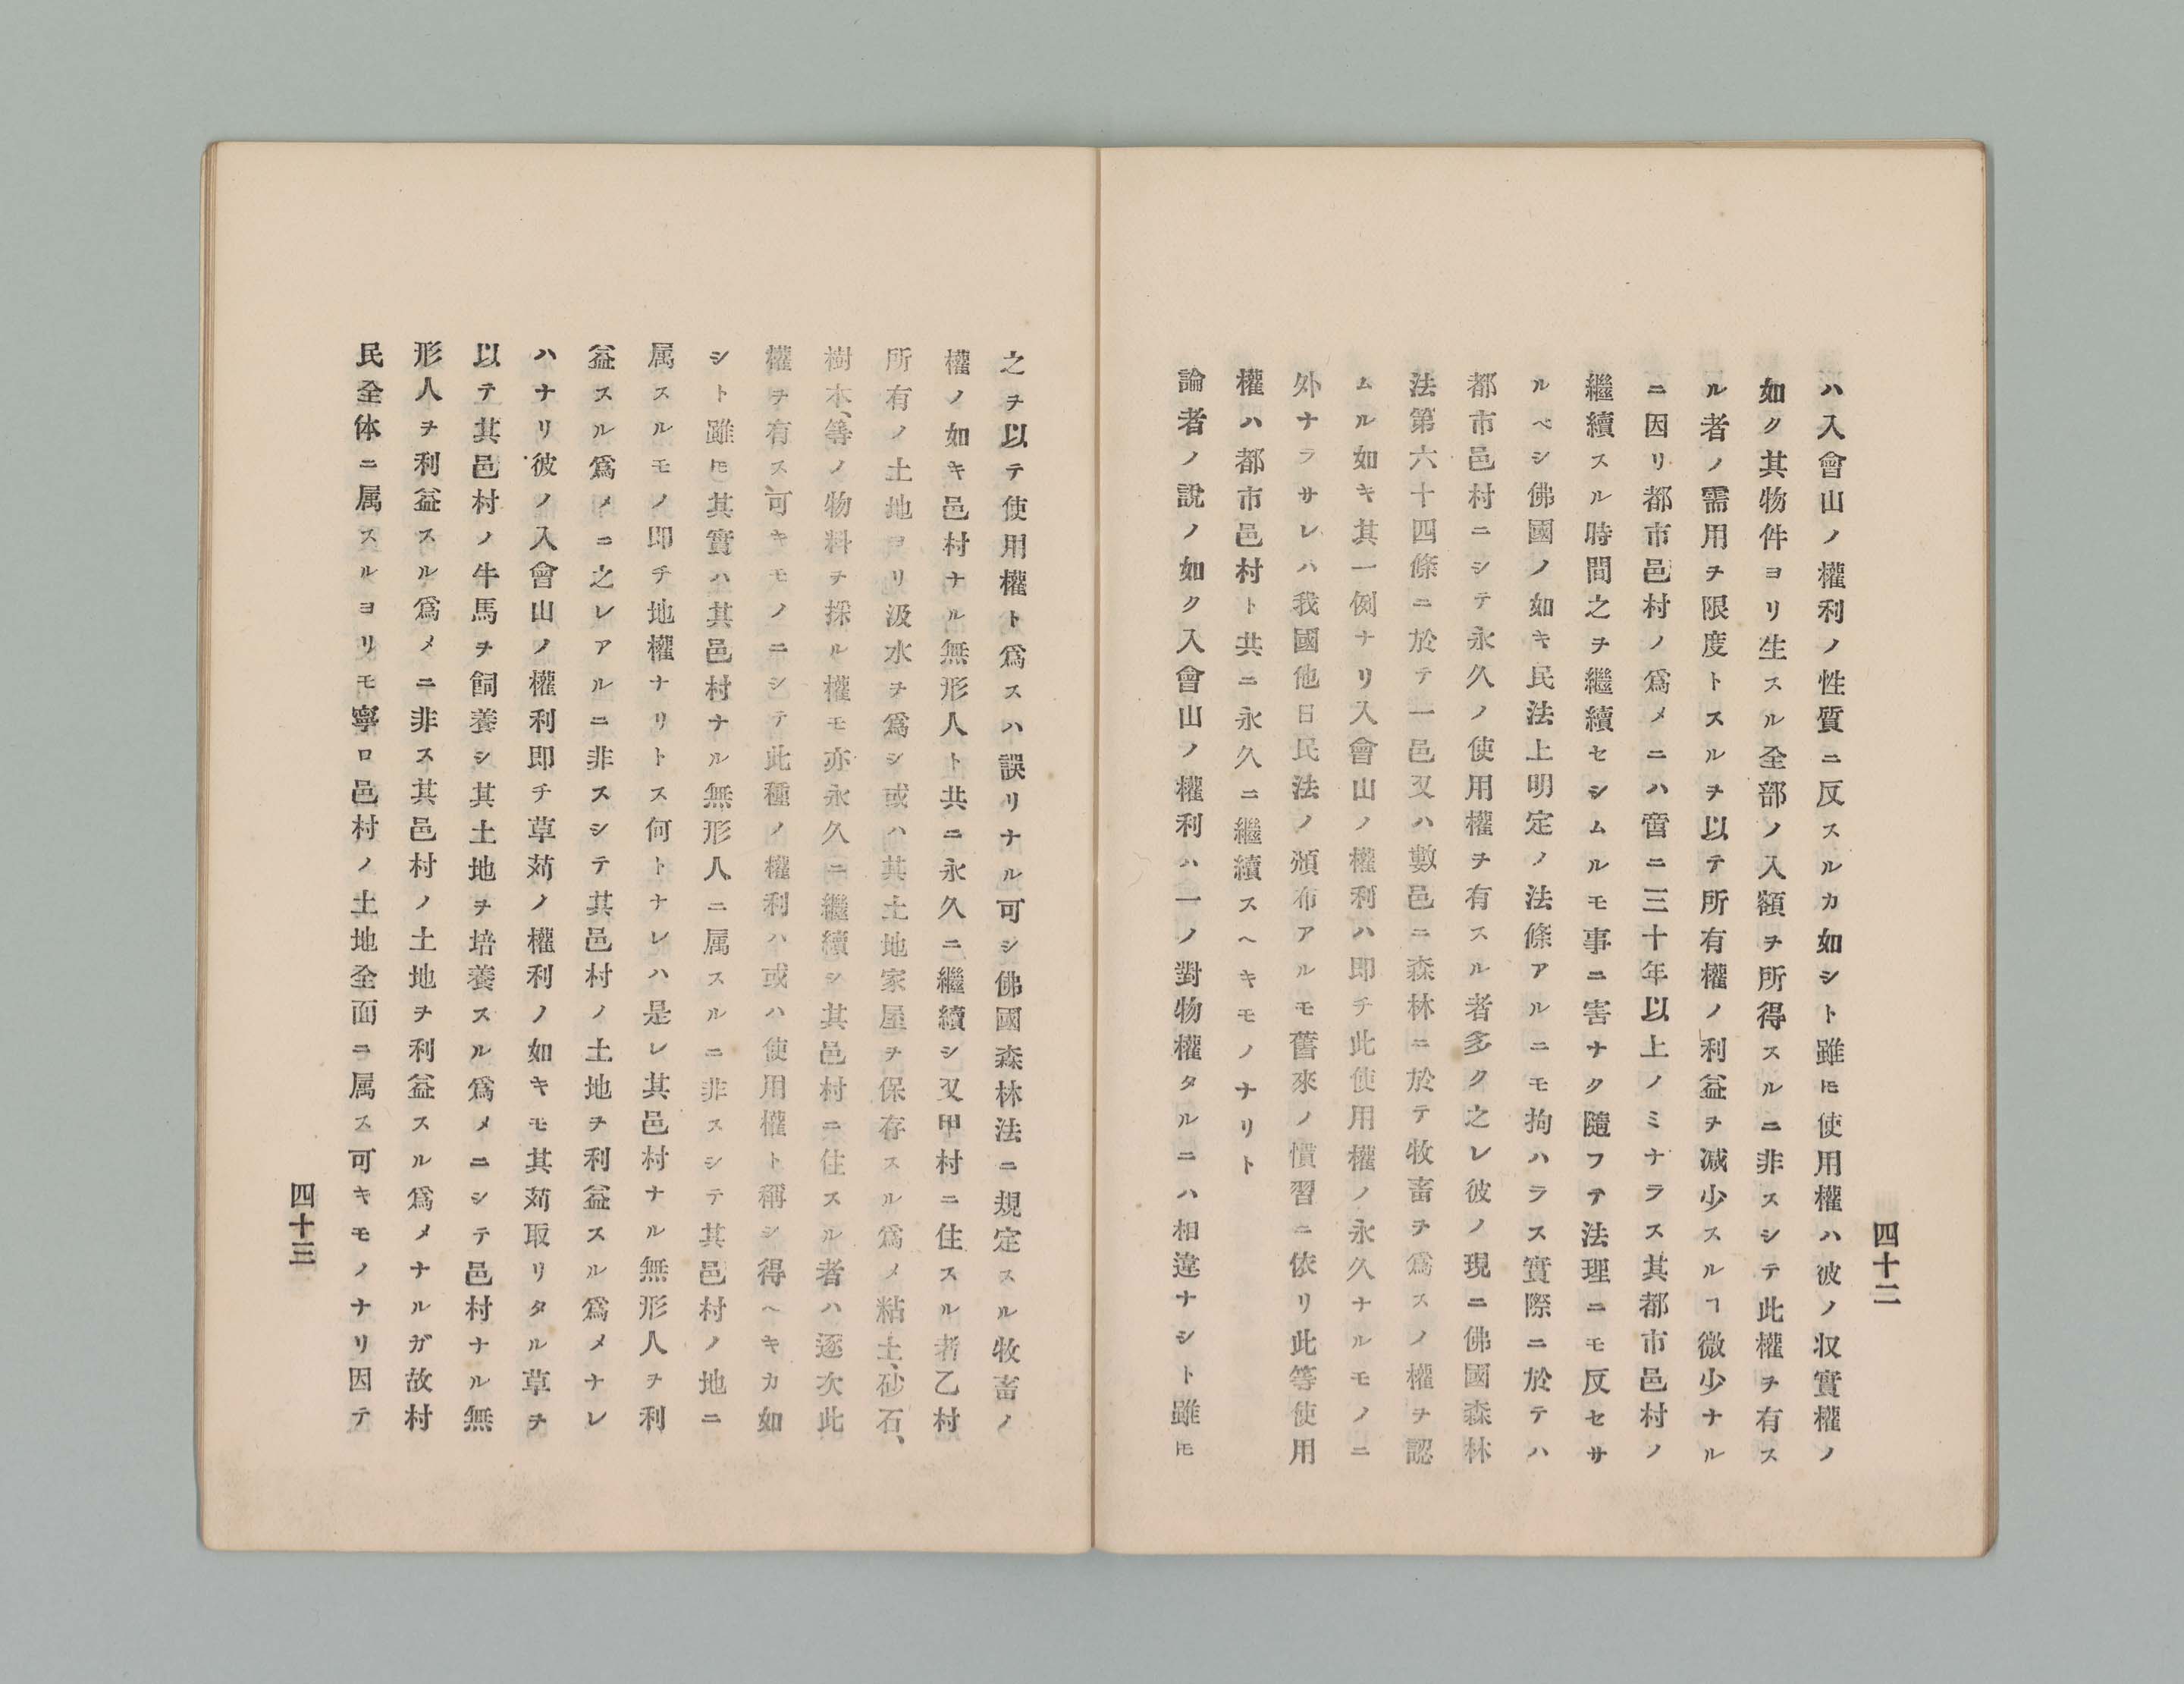 四十二
ハ入會山ノ權利ノ性質ニ反スルカ如シト雖𪜈使用權ハ彼ノ収實權ノ
如ク其物件ヨリ生スル全部ノ入額ヲ所得スルニ非スシテ此權ヲ有ス
ル者ノ需用ヲ限度トスルヲ以テ所有權ノ利益ヲ减少スルヿ微少ナル
ニ因リ都市邑村ノ爲メニハ啻ニ三十年以上ノミナラス其都市邑村ノ
繼續スル時間之ヲ繼續セシムルモ事ニ害ナク隨フテ法理ニモ反セサ
ルベシ佛國ノ如キ民法上明定ノ法條アルニモ拘ハラス實際ニ於テハ
都市邑村ニシテ永久ノ使用權ヲ有スル者多ク之レ彼ノ現ニ佛國森林
法第六十四條ニ於テ一邑又ハ數邑ニ森林ニ於テ牧畜ヲ爲スノ權ヲ認
ムル如キ其一例ナリ入會山ノ權利ハ即チ此使用權ノ永久ナルモノニ
外ナラサレハ我國他日民法ノ頒布アルモ舊來ノ慣習ニ依リ此等使用
權ハ都市邑村ト共ニ永久ニ繼續スヘキモノナリト
論者ノ說ノ如ク入會山ノ權利ハ一ノ對物權タルニハ相違ナシト雖𪜈
之ヲ以テ使用權ト爲スハ誤リナル可シ佛國森林法ニ規定スル牧畜ノ
權ノ如キ邑村ナル無形人ト共ニ永久ニ繼續シ又甲村ニ住スル者乙村
所有ノ土地ヨリ汲水ヲ爲シ或ハ其土地家屋ヲ保存スル爲メ粘土、砂石、
樹木、等ノ物料ヲ採ル權モ亦永久ニ繼續シ其邑村ニ住スル者ハ逐次此
權ヲ有ス可キモノニシテ此種ノ權利ハ或ハ使用權ト稱シ得ヘキカ如
シト雖𪜈其實ハ其邑村ナル無形人ニ属スルニ非スシテ其邑村ノ地ニ
属スルモノ即チ地權ナリトス何トナレハ是レ其邑村ナル無形人ヲ利
益スル爲メニ之レアルニ非スシテ其邑村ノ土地ヲ利益スル爲メナレ
ハナリ彼ノ入會山ノ權利即チ草苅ノ權利ノ如キモ其苅取リタル草ヲ
以テ其邑村ノ牛馬ヲ飼養シ其土地ヲ培養スル爲メニシテ邑村ナル無
形人ヲ利益スル爲メニ非ス其邑村ノ土地ヲ利益スル爲メナルガ故村
民全体ニ属スルヨリモ寧ロ邑村ノ土地全面ニ属ス可キモノナリ因テ
四十三